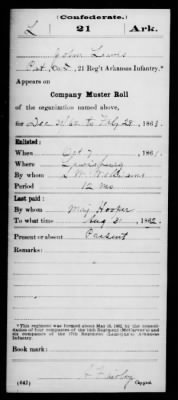 (Confederate.)
L 21 Ark.
John Lewis
Pvt, Co. D, 21 Reg't Arkansas Infantry.*
Appears on
Company Muster Roll
of the organization named above,
for Dec 31/62 to Feby 28, 1863.
Enlisted:
When Oct 7, 1861.
Where Lewisburg
By whom
Period 12 mo
Last paid:
By whom Maj. Hooker
To what time Aug 31, 1862.
Present or absent Present
Remarks:
*This regiment was formed about May 15, 1862, by the consolidation of four companies of the 14th Regiment (McCarver's) and six companies of the 17th Regiment Arkansas Infantry.
Book mark:
(642) Copyist.